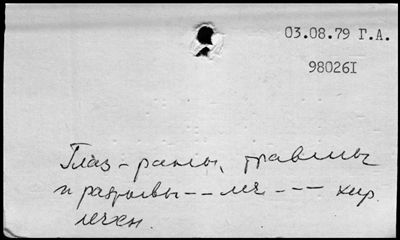 03.08.79 Г.А.
98026I
Глаз - раны, травмы
и разрывы -- леч --- хир.
лечен.